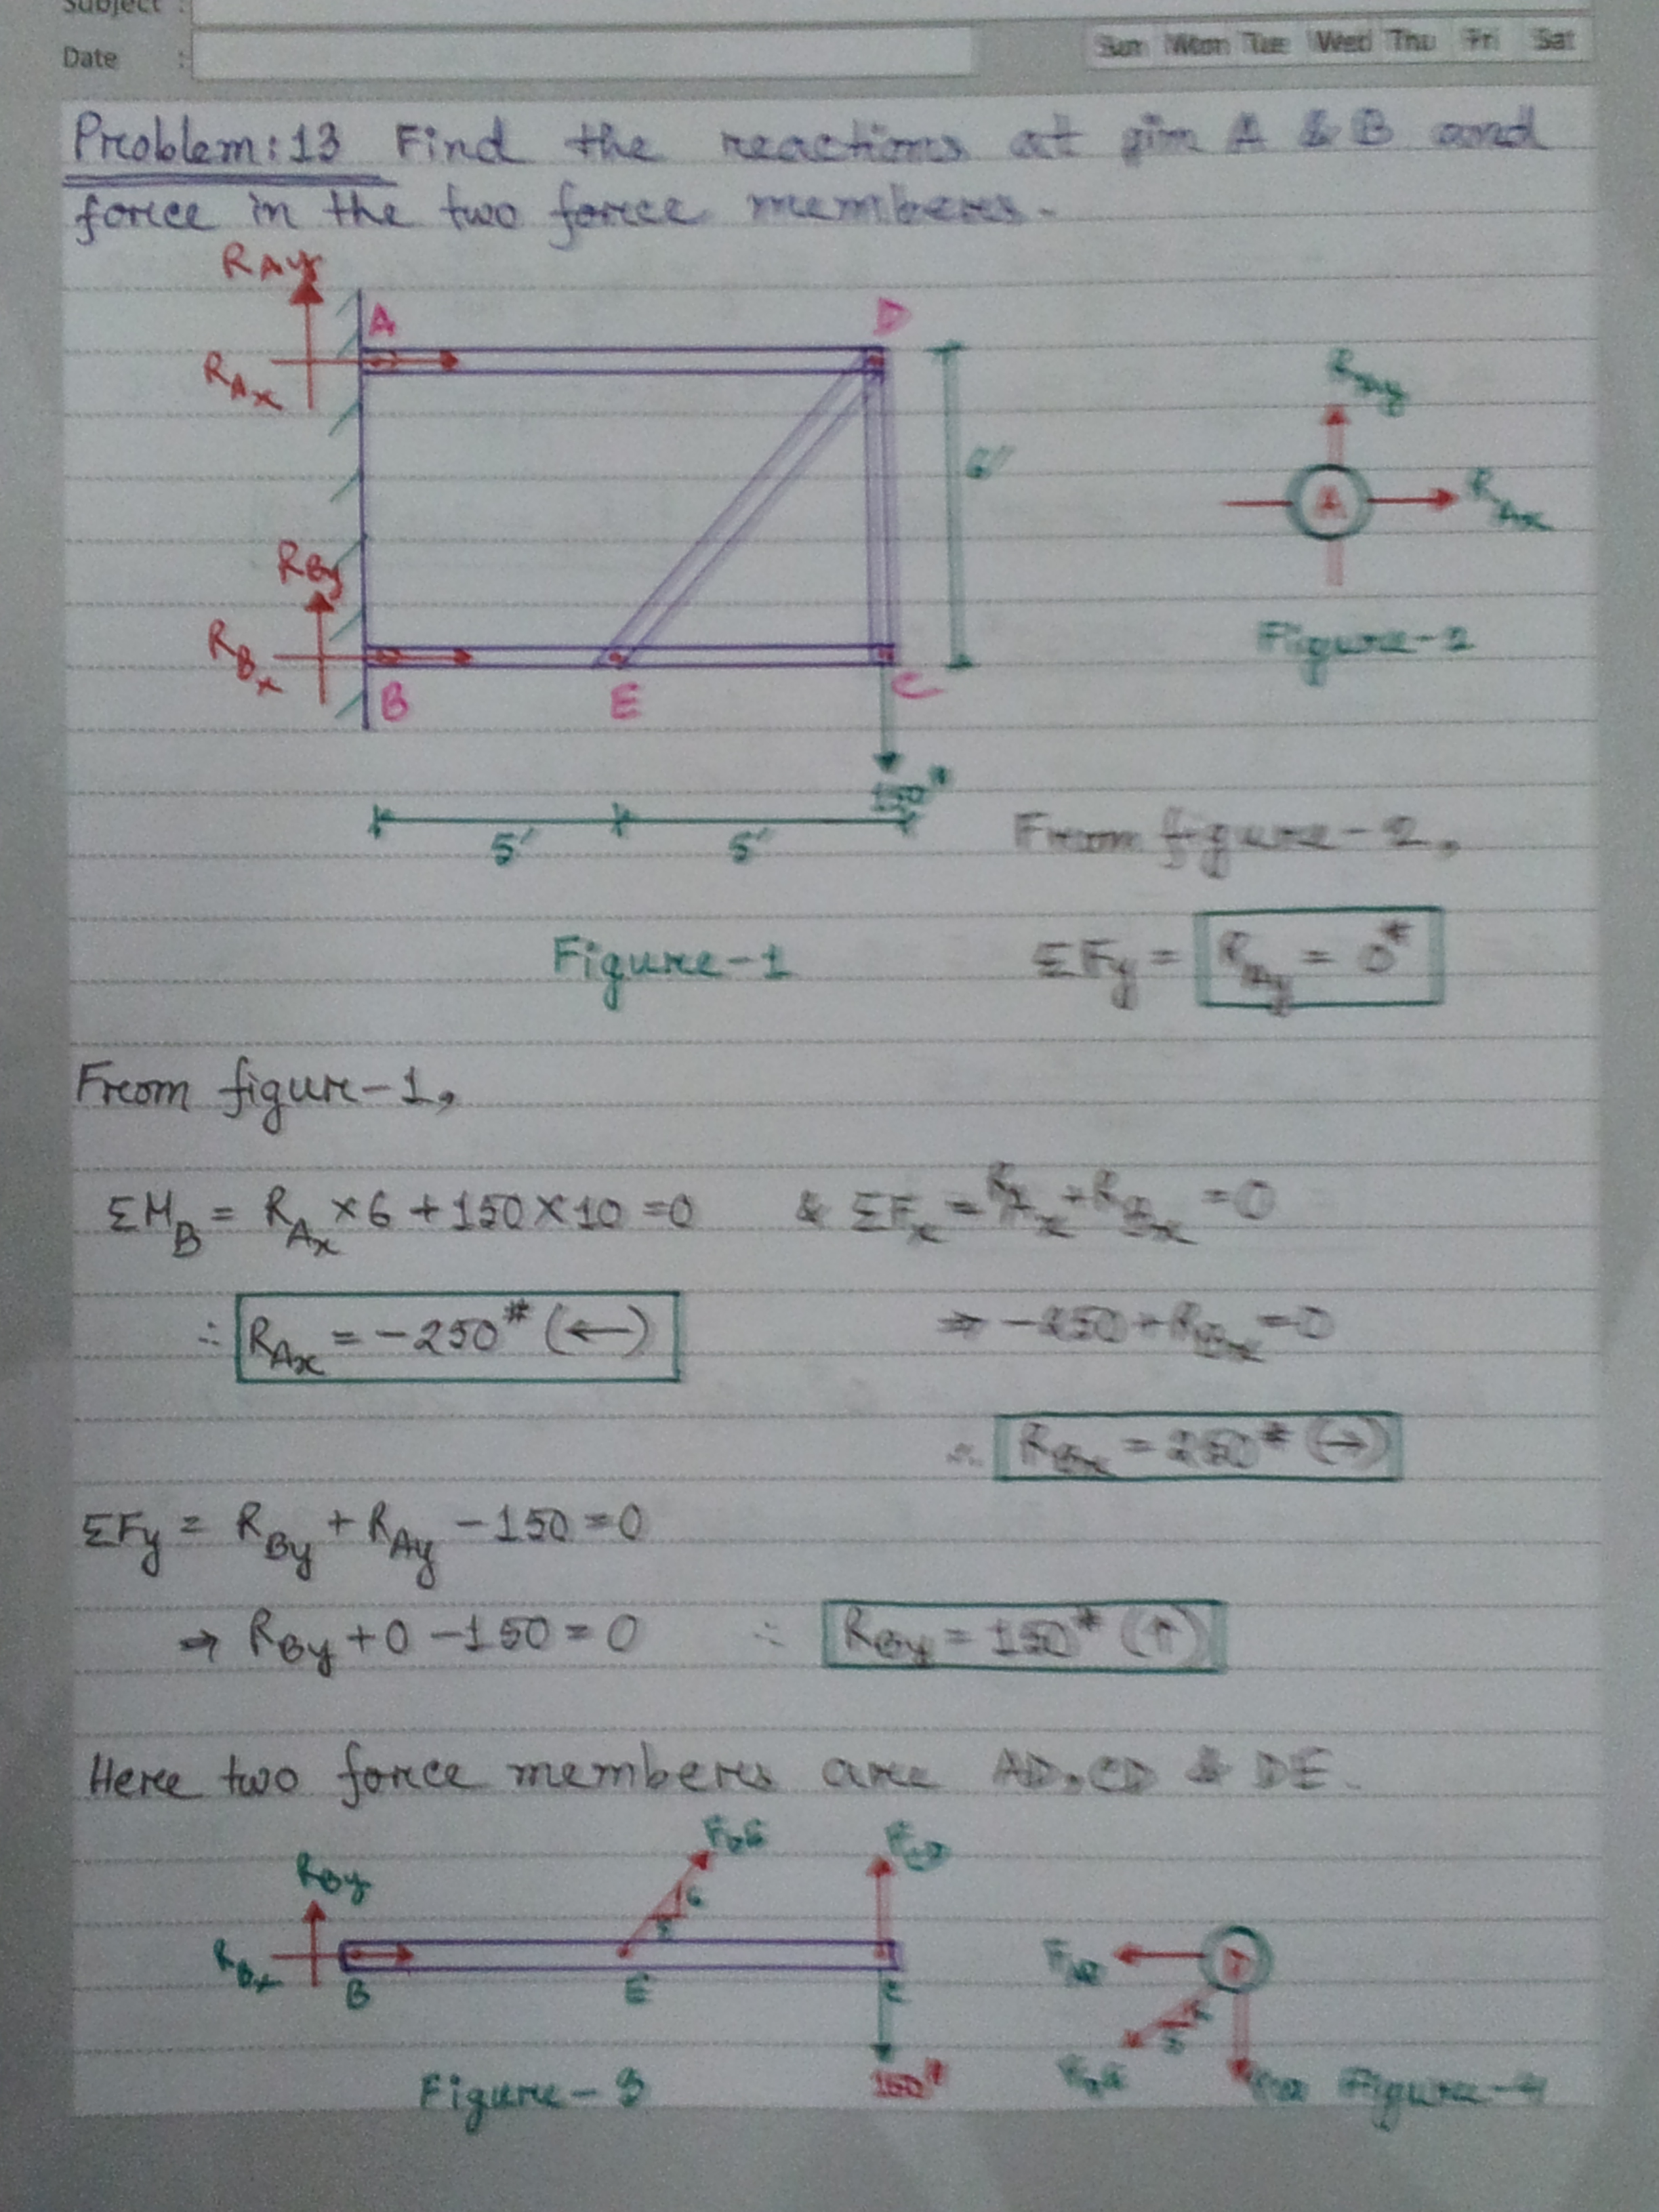 Subject :
Date :
Sun Mon Tue Wed Thu Fri Sat
Problem:13 Find the reactions at pin A & B and
force in the two force members.
R_Ay
A
D
R_Ax
6'
R_By
R_Bx
B
E
C
150#
5'
5'
Figure-1
R_Ay
A
R_Ax
Figure-2
From figure-2,
ΣFy = R_Ay = 0#
From figure-1,
ΣM_B = R_Ax × 6 + 150 × 10 = 0 & ΣF_x = R_Ax + R_Bx = 0
∴ R_Ax = -250# (←) ⇒ -250 + R_Bx = 0
∴ R_Bx = 250# (→)
ΣFy = R_By + R_Ay - 150 = 0
⇒ R_By + 0 - 150 = 0 ∴ R_By = 150# (↑)
Here two force members are AD, CD & DE.
R_By
R_Bx
B
F_DE
6
5
E
F_CD
C
150#
Figure-3
F_AD
D
5
F_DE
F_CD
Figure-4